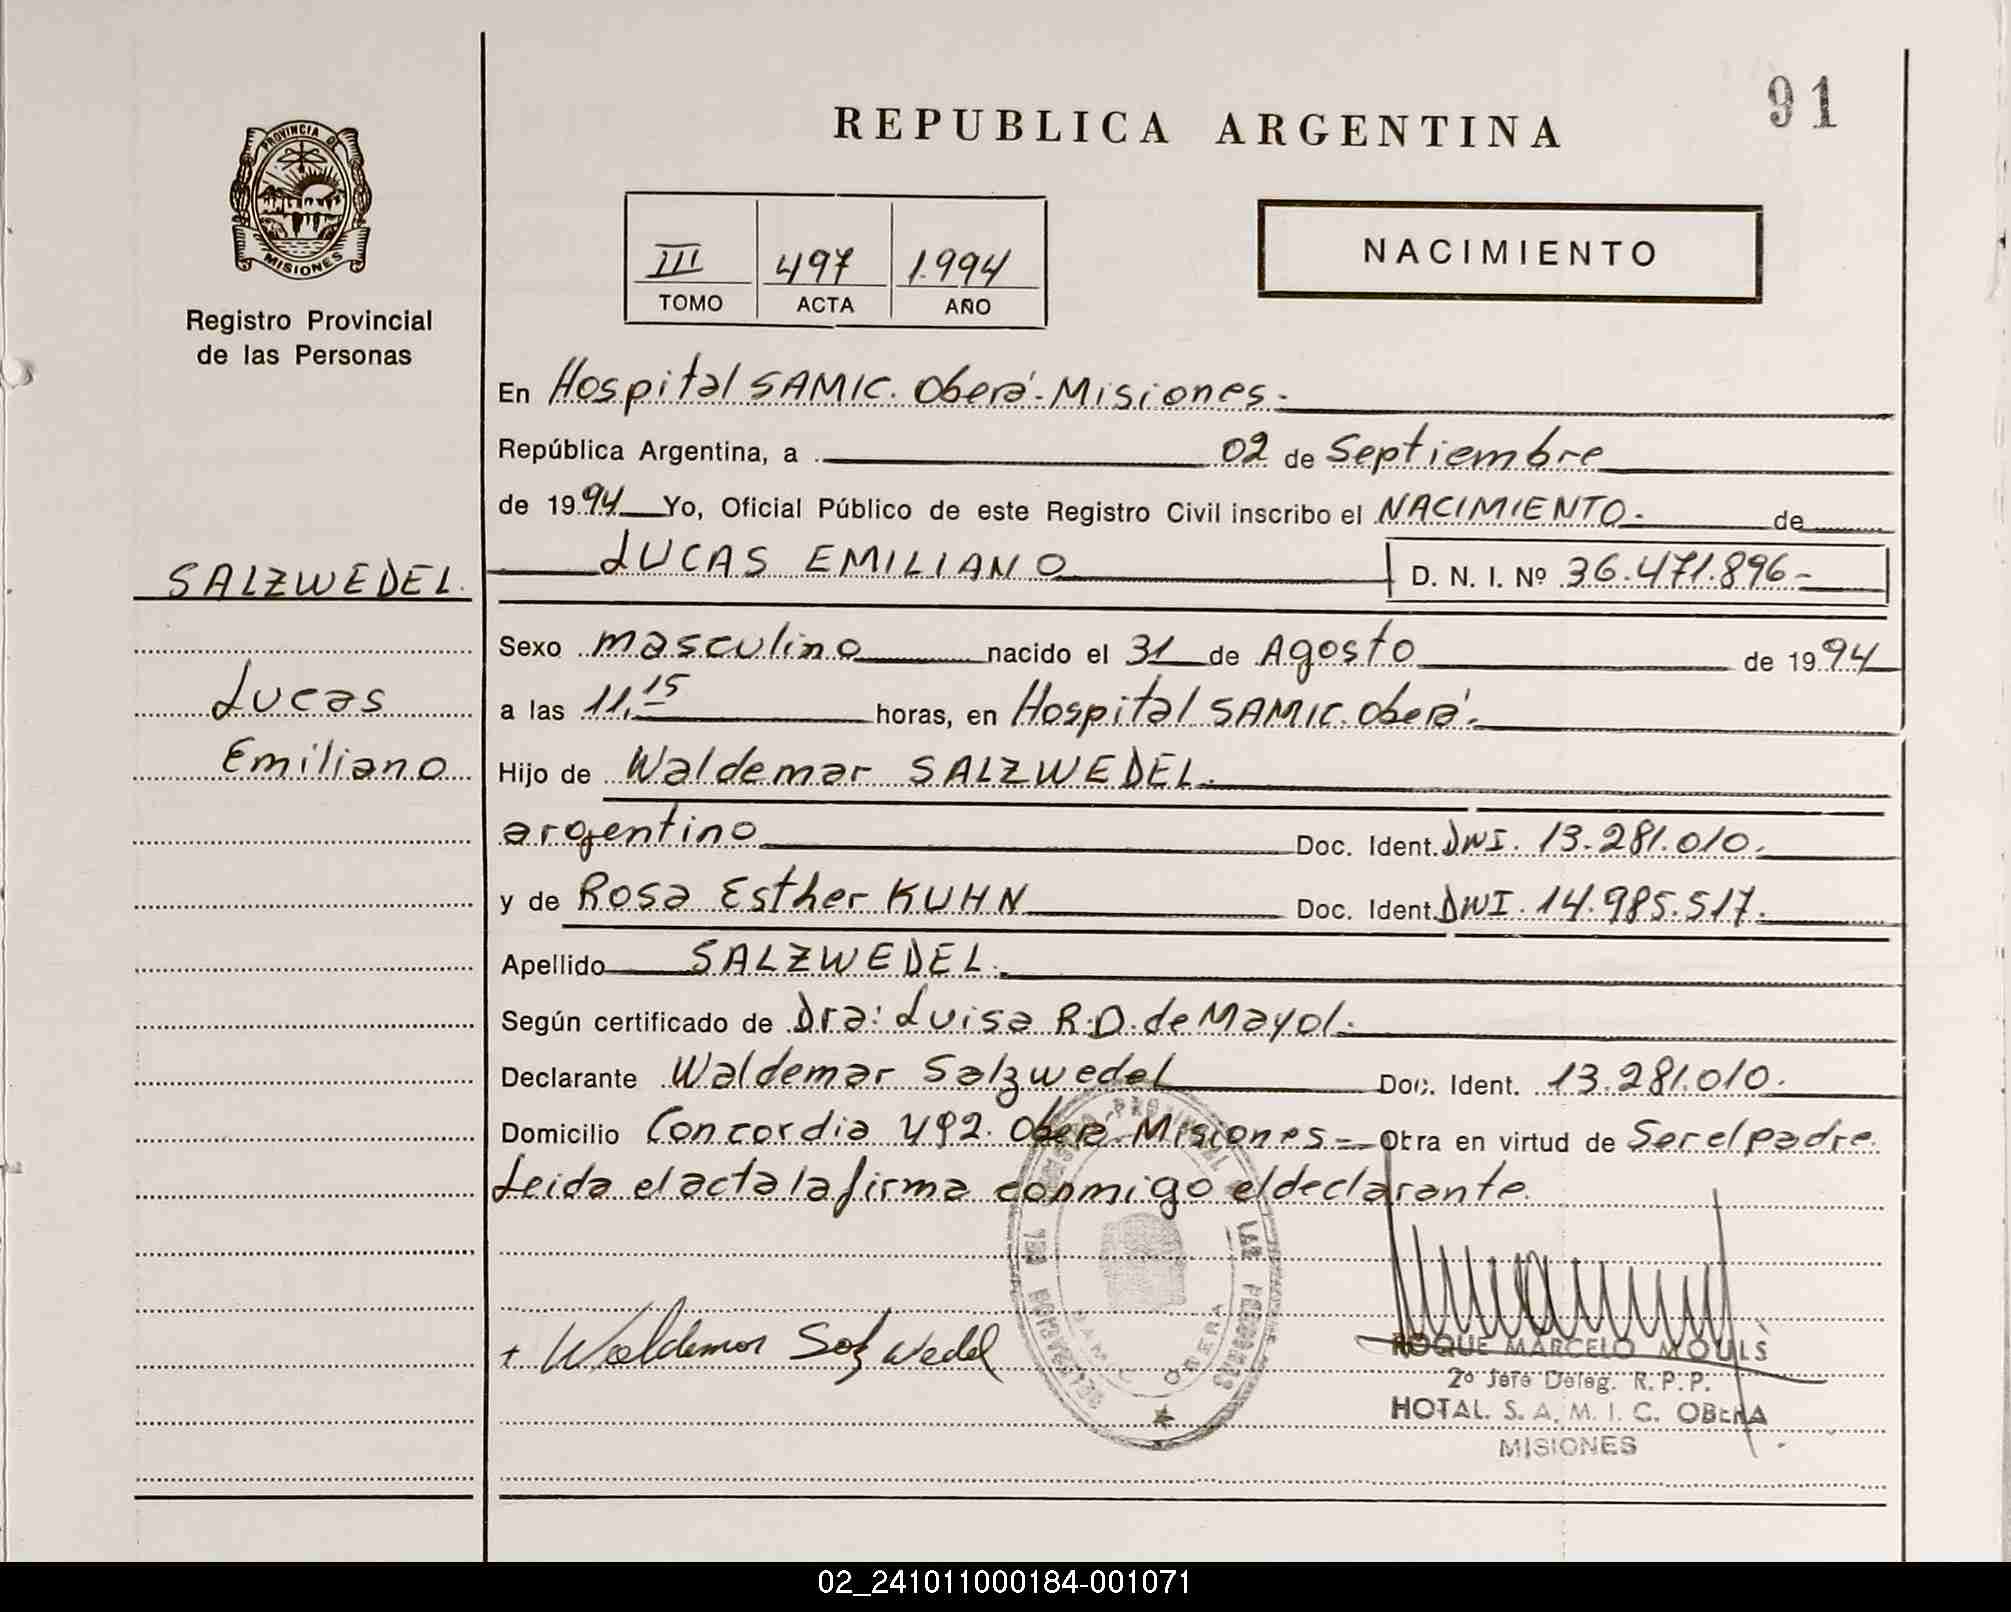 91
REPUBLICA ARGENTINA
PROVINCIA DE
MISIONES
Registro Provincial
de las Personas
III 497 1.994
TOMO ACTA AÑO
NACIMIENTO
En Hospital SAMIC. Oberá-Misiones.-
República Argentina, a 02 de Septiembre
de 1994 Yo, Oficial Público de este Registro Civil inscribo el NACIMIENTO.- de
LUCAS EMILIANO D. N. I. Nº 36.471.896-
SALZWEDEL.
Lucas
Emiliano
Sexo masculino nacido el 31 de Agosto de 1994
a las 11,15 horas, en Hospital SAMIC. Oberá.-
Hijo de Waldemar SALZWEDEL.
argentino Doc. Ident. DNI. 13.281.010.
y de Rosa Esther KUHN Doc. Ident. DNI. 14.985.517.
Apellido SALZWEDEL.
Según certificado de Dra: Luisa R.D. de Mayol.-
Declarante Waldemar Salzwedel Doc. Ident. 13.281.010.
Domicilio Concordia 492. Oberá-Misiones.- Obra en virtud de Ser el padre.
Leida el acta la firma conmigo el declarante.
+ Waldemar Salzwedel
ROQUE MARCELO MOULS
2º Jefe Deleg. R.P.P.
HOTAL. S. A. M. I. C. OBERA
MISIONES
02_241011000184-001071